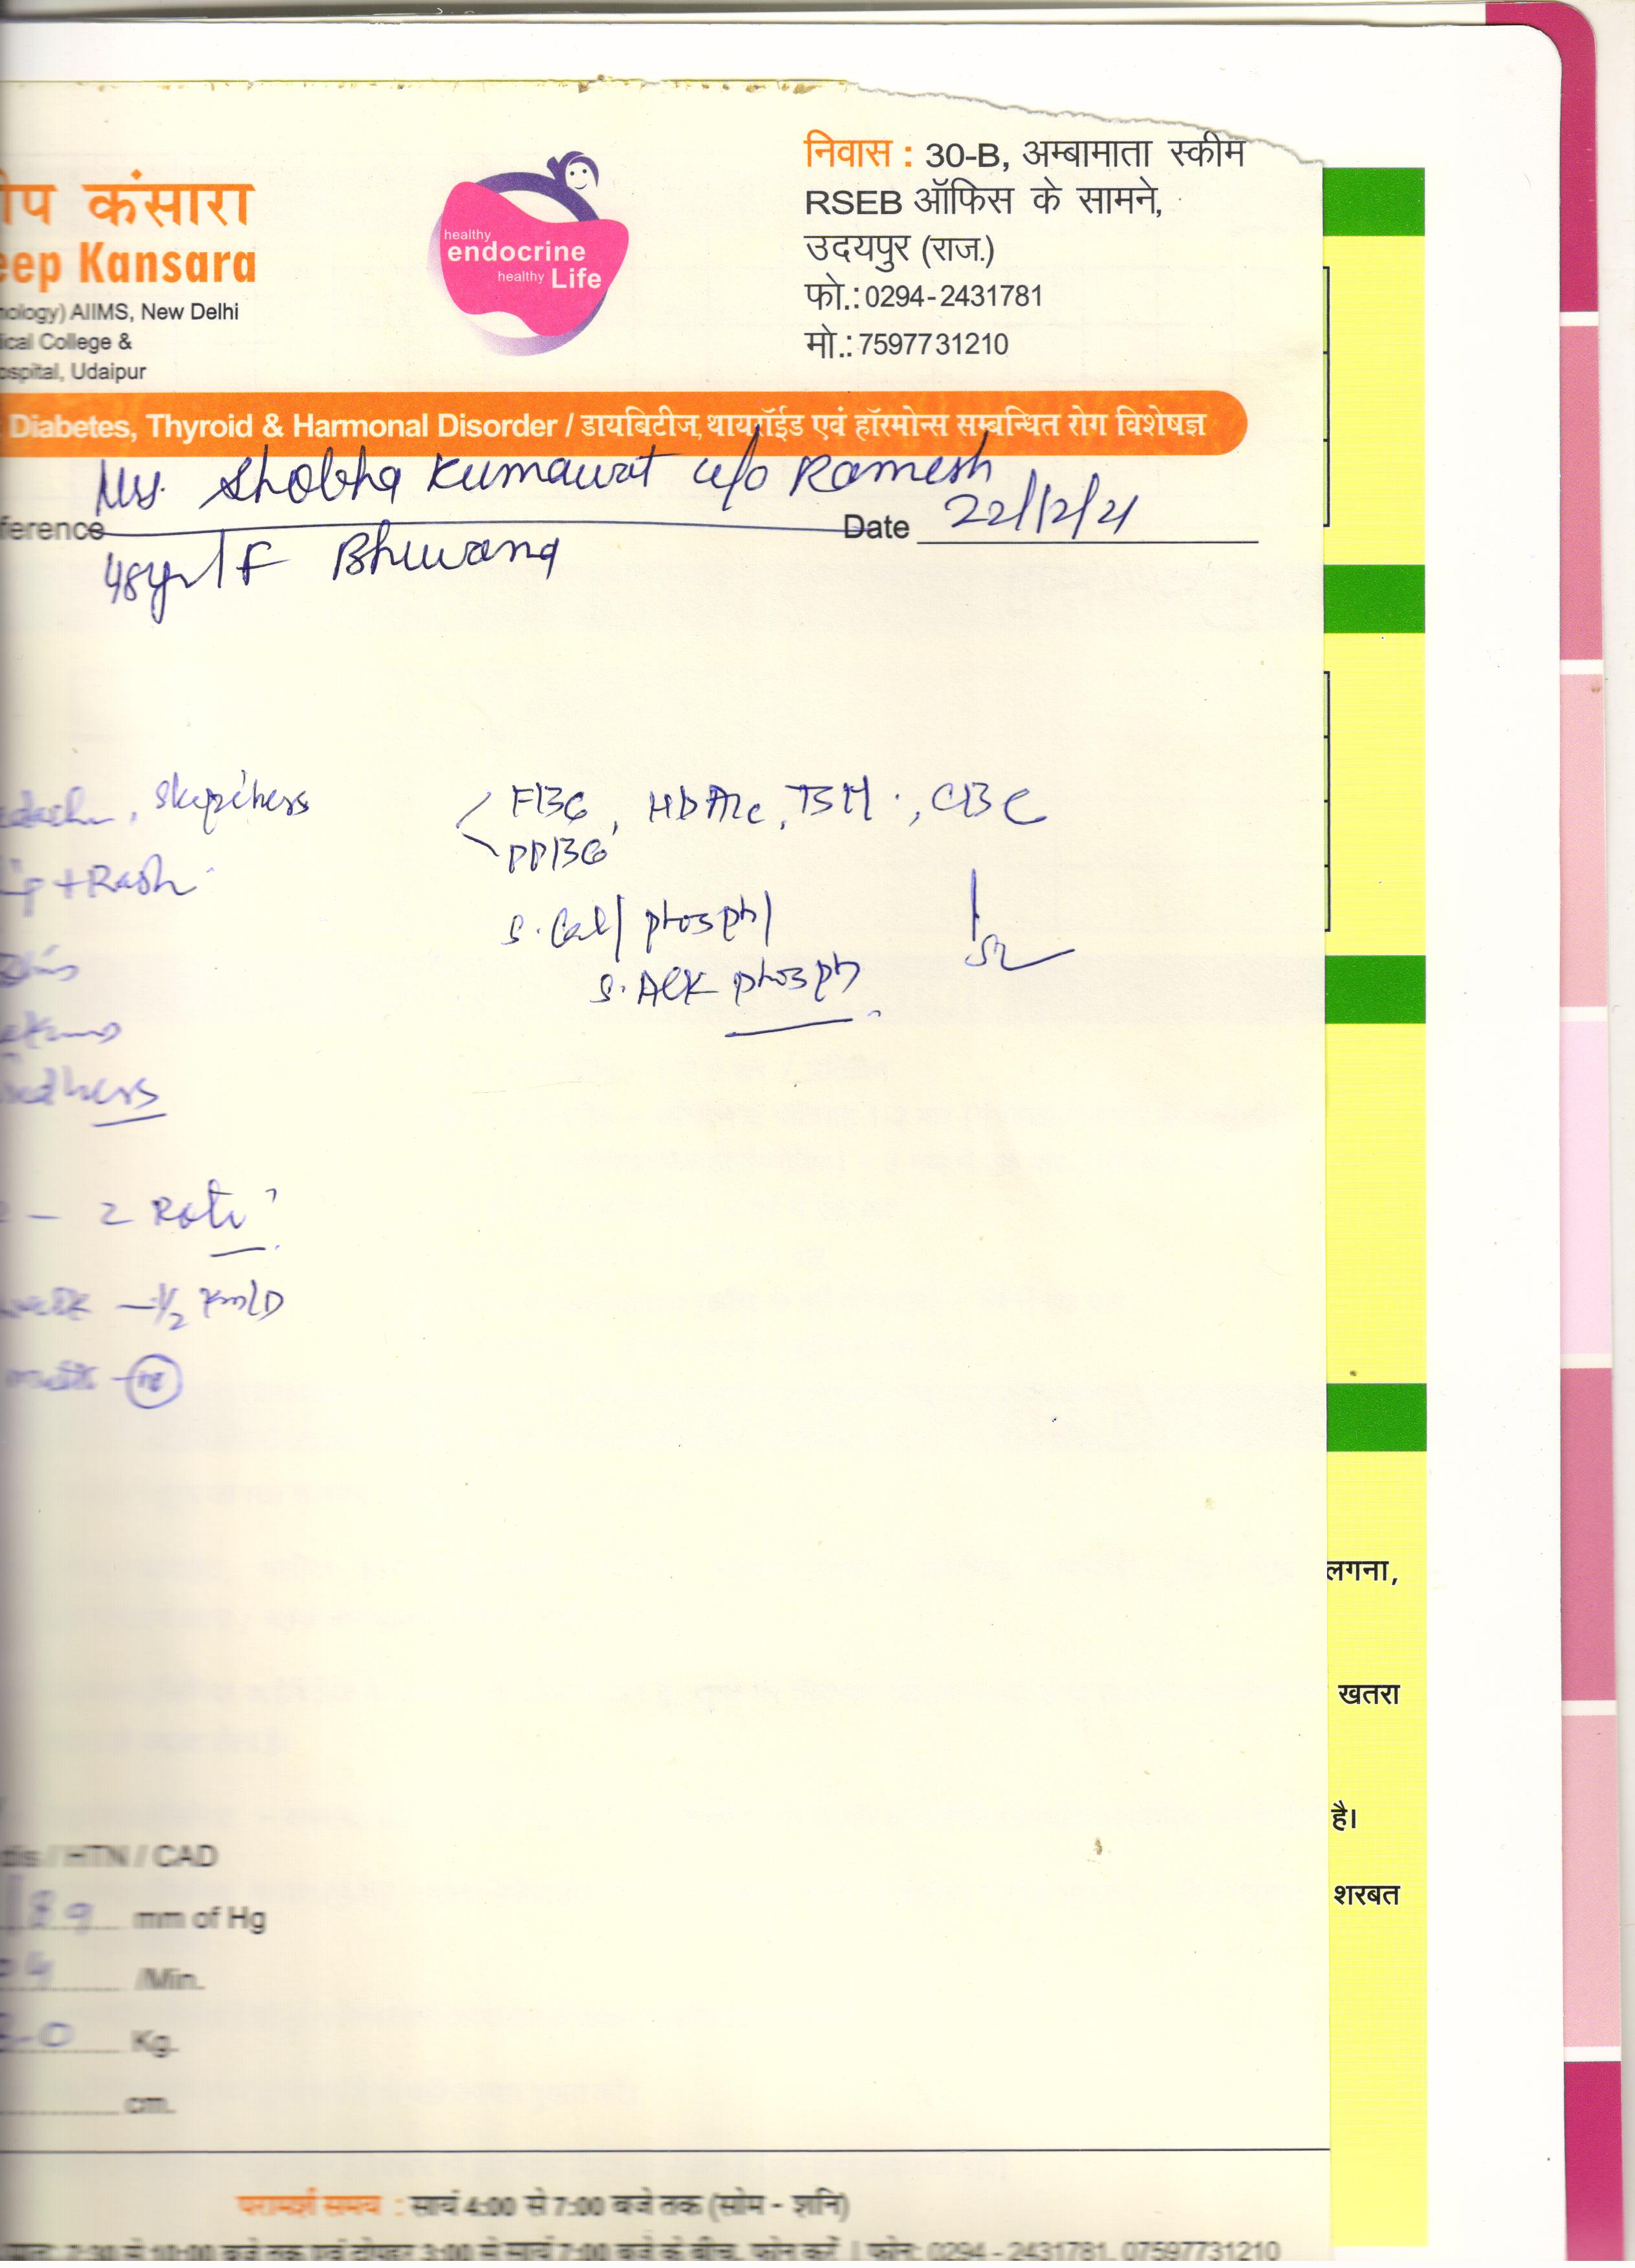 निवास : 30-B, अम्बामाता स्कीम
RSEB ऑफिस के सामने,
उदयपुर (राज.)
फो.: 0294-2431781
मो.: 7597731210
ीप कंसारा
eep Kansara
nology) AIIMS, New Delhi
ical College &
ospital, Udaipur
healthy
endocrine
healthy Life
Diabetes, Thyroid & Harmonal Disorder / डायबिटीज, थायरॉईड एवं हॉरमोन्स सम्बन्धित रोग विशेषज्ञ
Mrs. Shobha Kumawat w/o Ramesh
ference Date 22/12/21
48yr/F Bhuwana
FBG, HbA1c, TSH, CBC
PPBG
+Rash
S. Cal/ phosph/
S. Alk phosph
- 2 Roti
- 1/2 Km/D
लगना,
खतरा
है।
शरबत
dis / HTN / CAD
mm of Hg
/Min.
Kg.
cm.
परामर्श समय : सायं 4:00 से 7:00 बजे तक (सोम - शनि)
7:30 से 10:00 बजे तक एवं दोपहर 3:00 से सायं 7:00 बजे के बीच, फोन करें । फोन: 0294 - 2431781, 07597731210